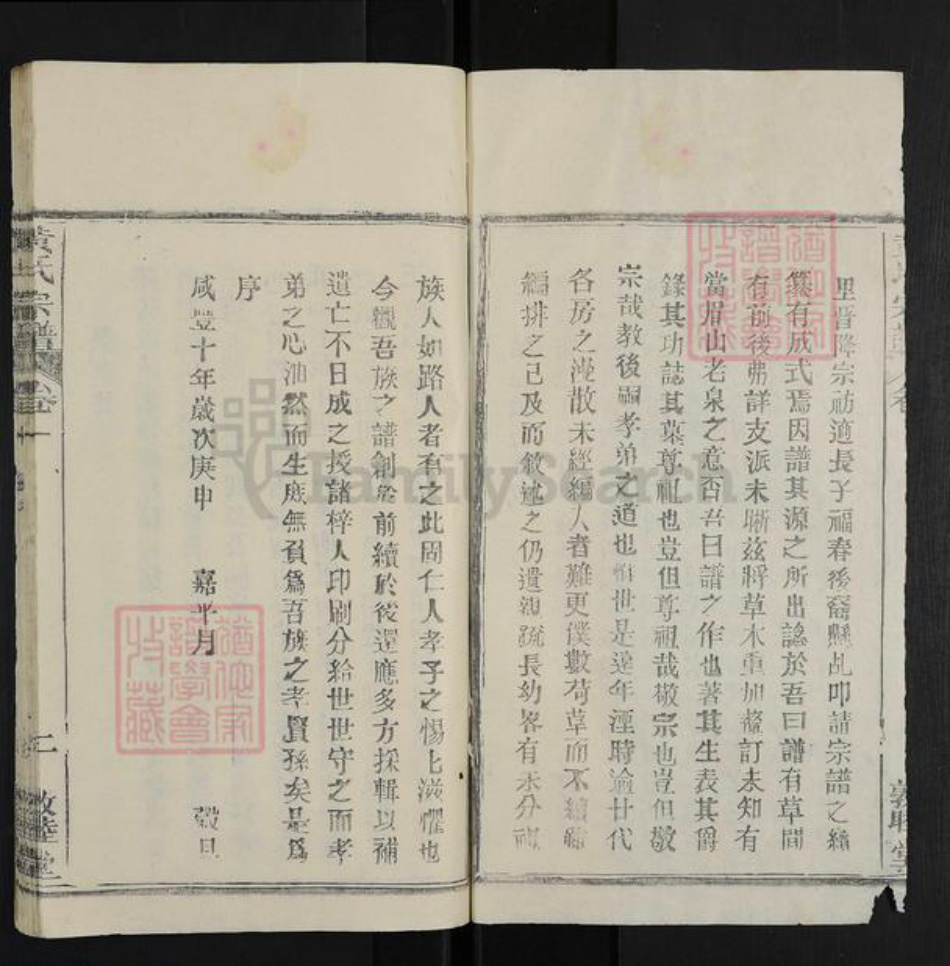 里晉降宗祊適長子福春後裔懸乩叩請宗譜之纘
纂有成式焉因譜其源之所出諗於吾曰譜有草間
有前後弗詳支派未晰茲將草本重加釐訂未知有
當眉山老泉之意否吾曰譜之作也著其生表其爵
錄其功誌其墓尊祖也豈但尊祖哉敬宗也豈但敬
宗哉教後嗣孝弟之道也世是遠年湮時逾廿代
各房之散未經編入者難更僕數苟草而不續
編排之已及而敘述之仍遺親疏長幼畧有未分視
族人如路人者有之此固仁人孝子之惕匕滋懼也
今觀吾族之譜創於前續於後還應多方採輯以補
遺亡不日成之授諸梓人印刷分給世世守之而孝
弟之心油然而生庶無負為吾族之孝賢孫矣是為
序
咸豐十年歲次庚申 嘉平月 穀旦
黃氏宗譜 卷一 二 敦睦堂
猶他家譜學會收藏
猶他家譜學會收藏
FamilySearch